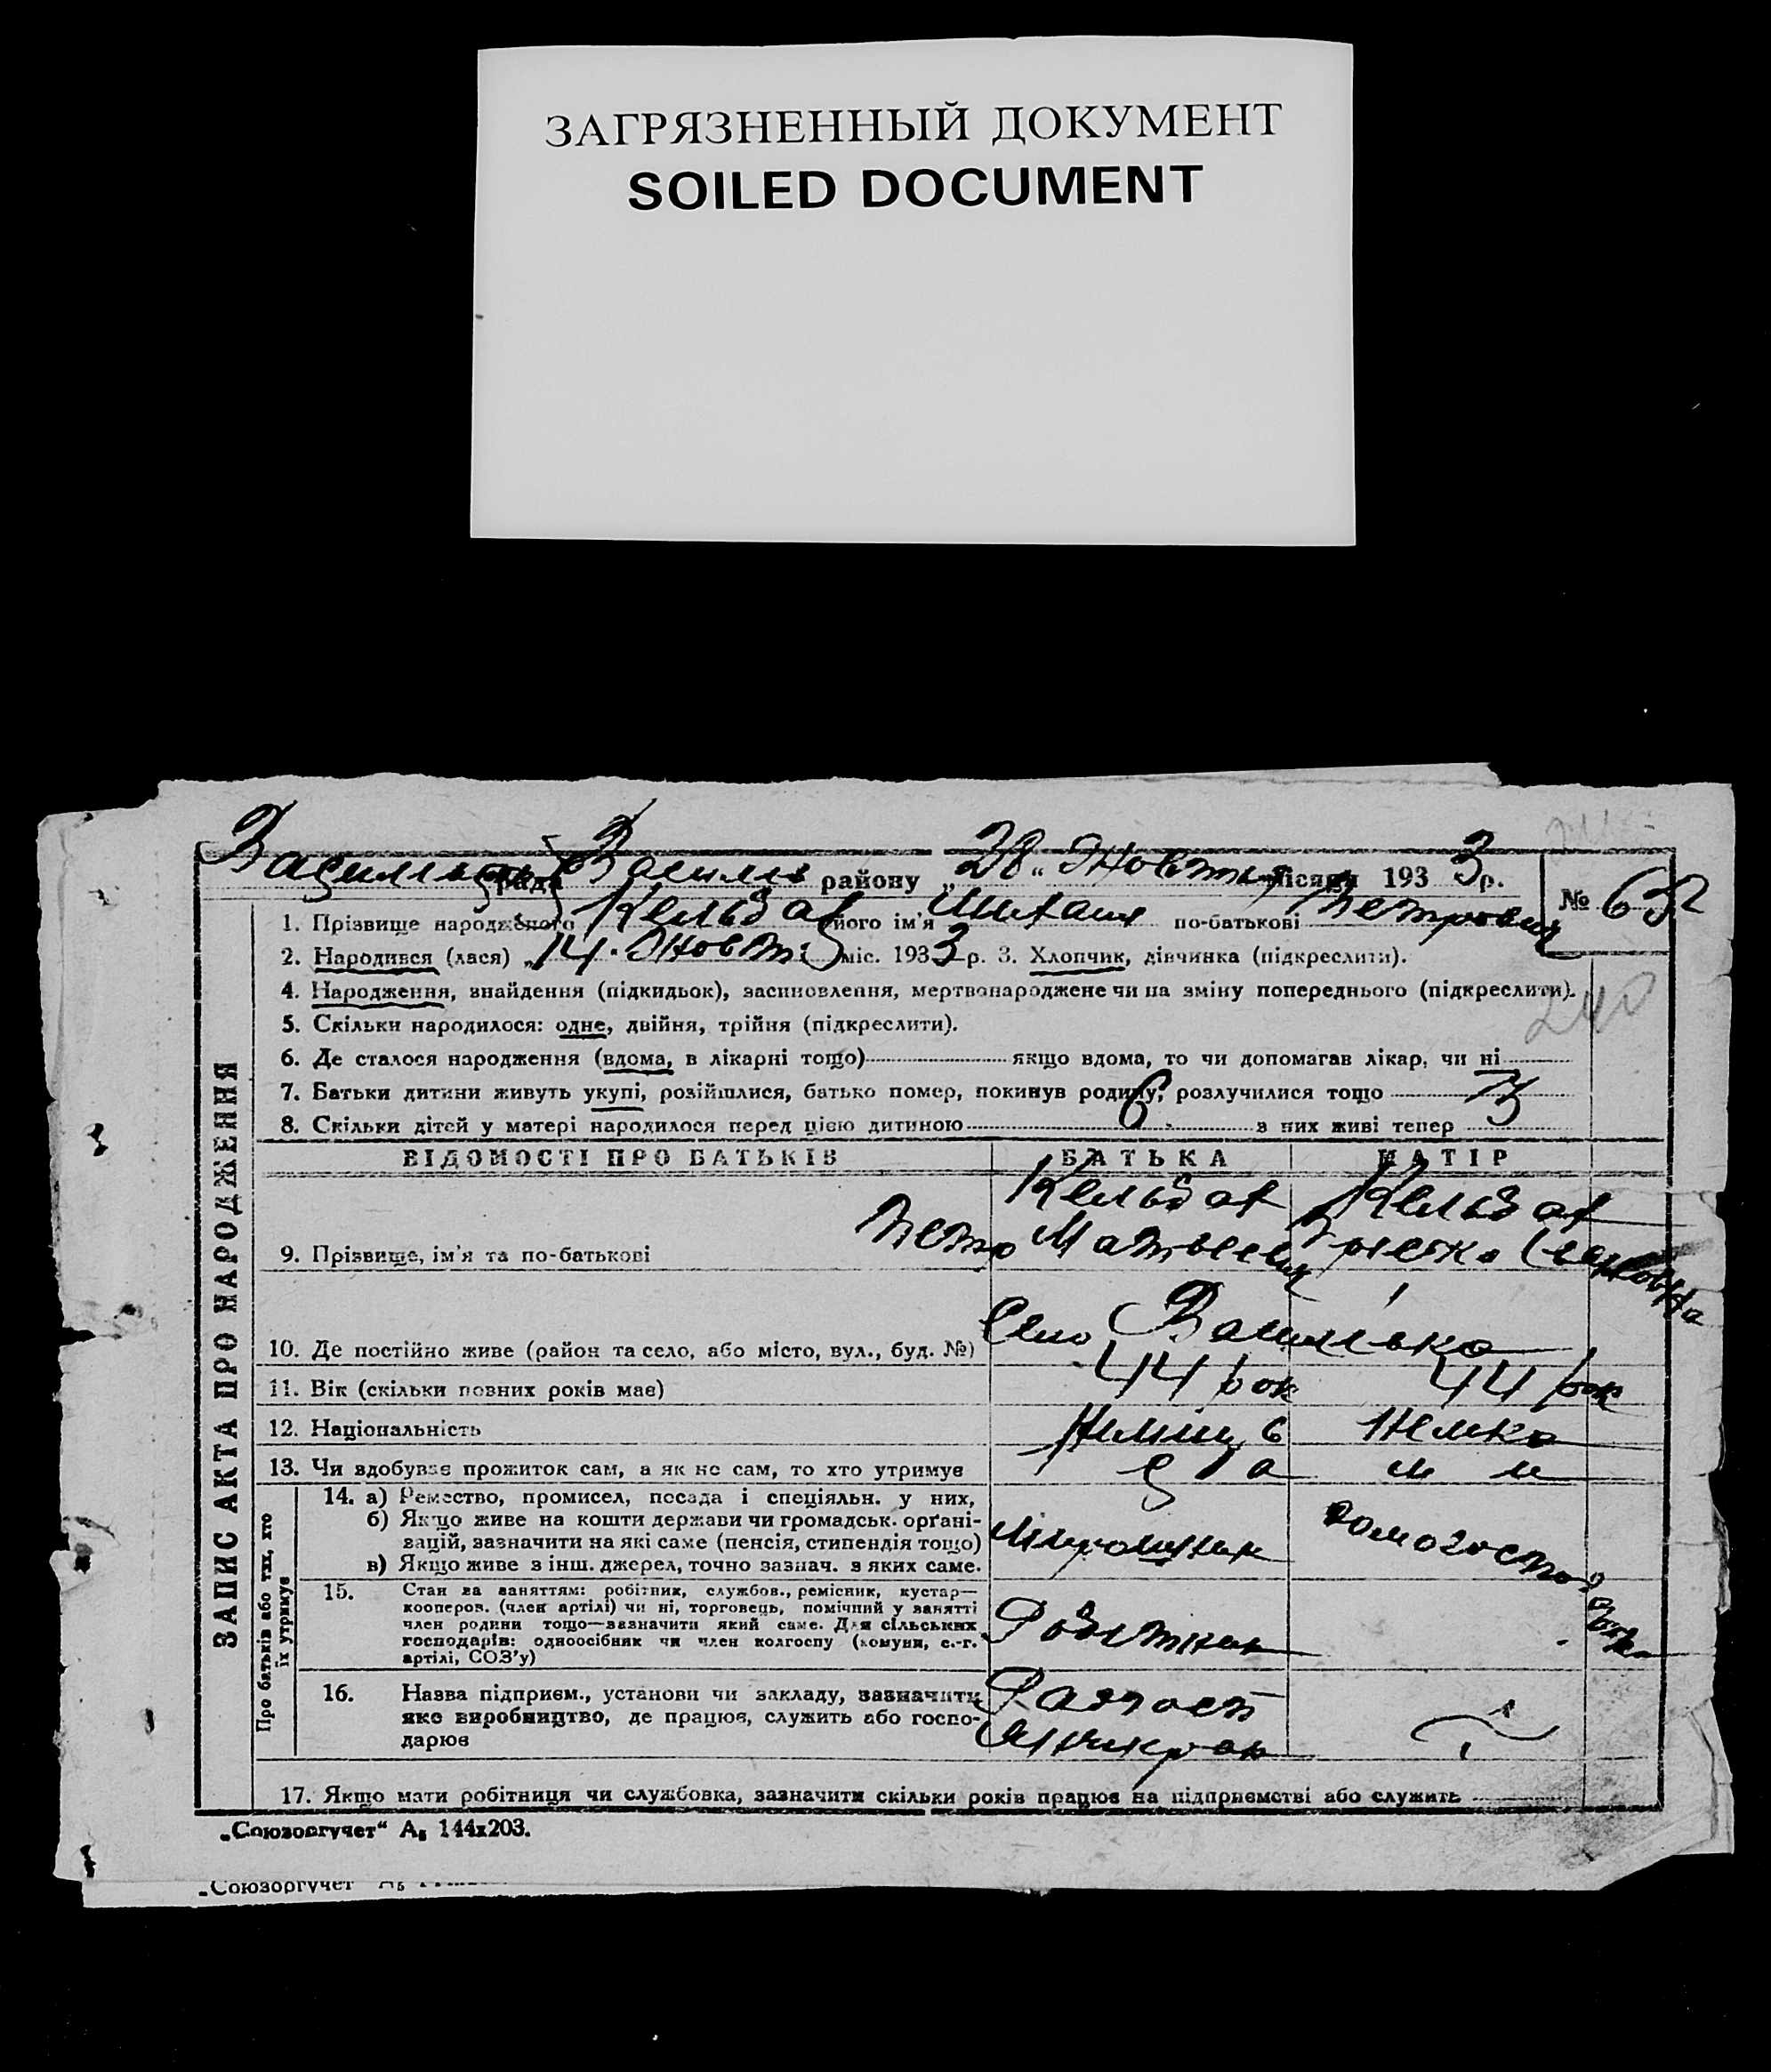 ЗАГРЯЗНЕННЫЙ ДОКУМЕНТ
SOILED DOCUMENT
рада району „28“ Жовтня місяця 1933 р.
№ 62
1. Прізвище народженого Кельбах його ім'я Михаил по-батькові Петрович
2. Народився (лася) „14. Жовтня міс. 1933 р. 3. Хлопчик, дівчинка (підкреслити).
4. Народження, знайдення (підкидьок), засиновлення, мертвонароджене чи на зміну попереднього (підкреслити).
240
5. Скільки народилося: одне, двійня, трійня (підкреслити).
6. Де сталося народження (вдома, в лікарні тощо) якщо вдома, то чи допомагав лікар, чи ні
7. Батьки дитини живуть укупі, розійшлися, батько помер, покинув родину, розлучилися тощо
8. Скільки дітей у матері народилося перед цією дитиною 6 з них живі тепер 3
ЗАПИС АКТА ПРО НАРОДЖЕННЯ
ВІДОМОСТІ ПРО БАТЬКІВ БАТЬКА МАТІР
Кельбах Кельбах
9. Прізвище, ім'я та по-батькові Петро Матвеевич
10. Де постійно живе (район та село, або місто, вул., буд. №) Село
11. Вік (скільки повних років має) 44 рок 44 рок
12. Національність Німець Немка
13. Чи здобуває прожиток сам, а як не сам, то хто утримує
Про батьків або тих, хто їх утримує
14. а) Ремество, промисел, посада і спеціяльн. у них,
б) Якщо живе на кошти держави чи громадськ. орґані-
зацій, зазначити на які саме (пенсія, стипендія тощо)
в) Якщо живе з інш. джерел, точно зазнач. з яких саме.
15. Стан за заняттям: робітник, службов., ремісник, кустар—
кооперов. (член артілі) чи ні, торговець, помічний у занятті
член родини тощо—зазначити який саме. Для сільських
господарів: одноосібник чи член колгоспу (комуни, с.-г.
артілі, СОЗ'у)
Робітник
16. Назва підприєм., установи чи закладу, зазначити
яке виробництво, де працює, служить або госпо-
дарює
17. Якщо мати робітниця чи службовка, зазначити скільки років працює на підприємстві або служить
„Союзоргучет“ А₅ 144х203.
„Союзоргучет